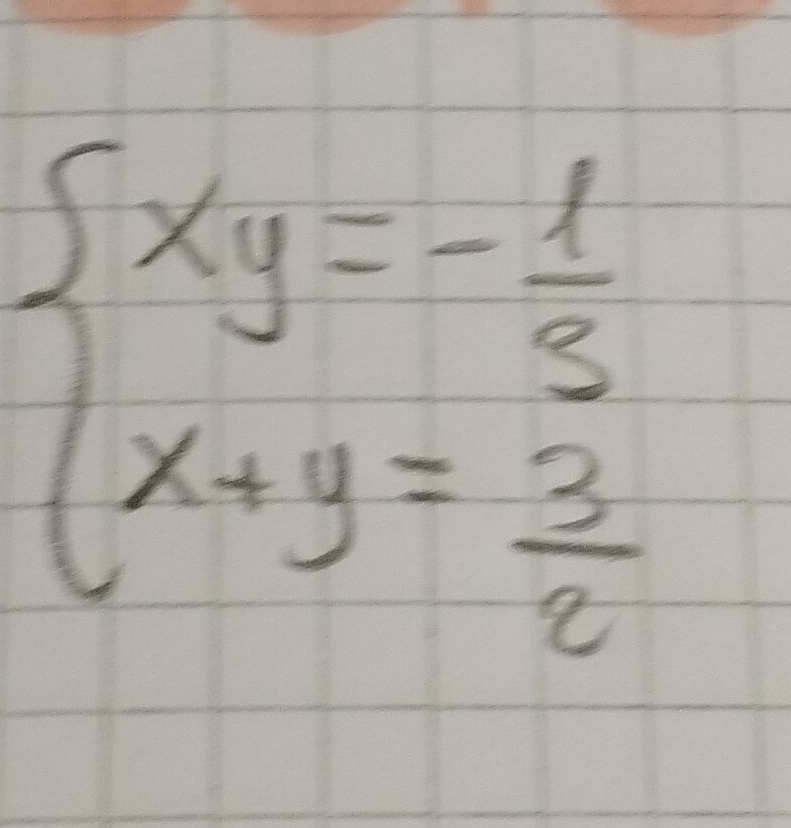 xy = - 1/9
x + y = 3/2